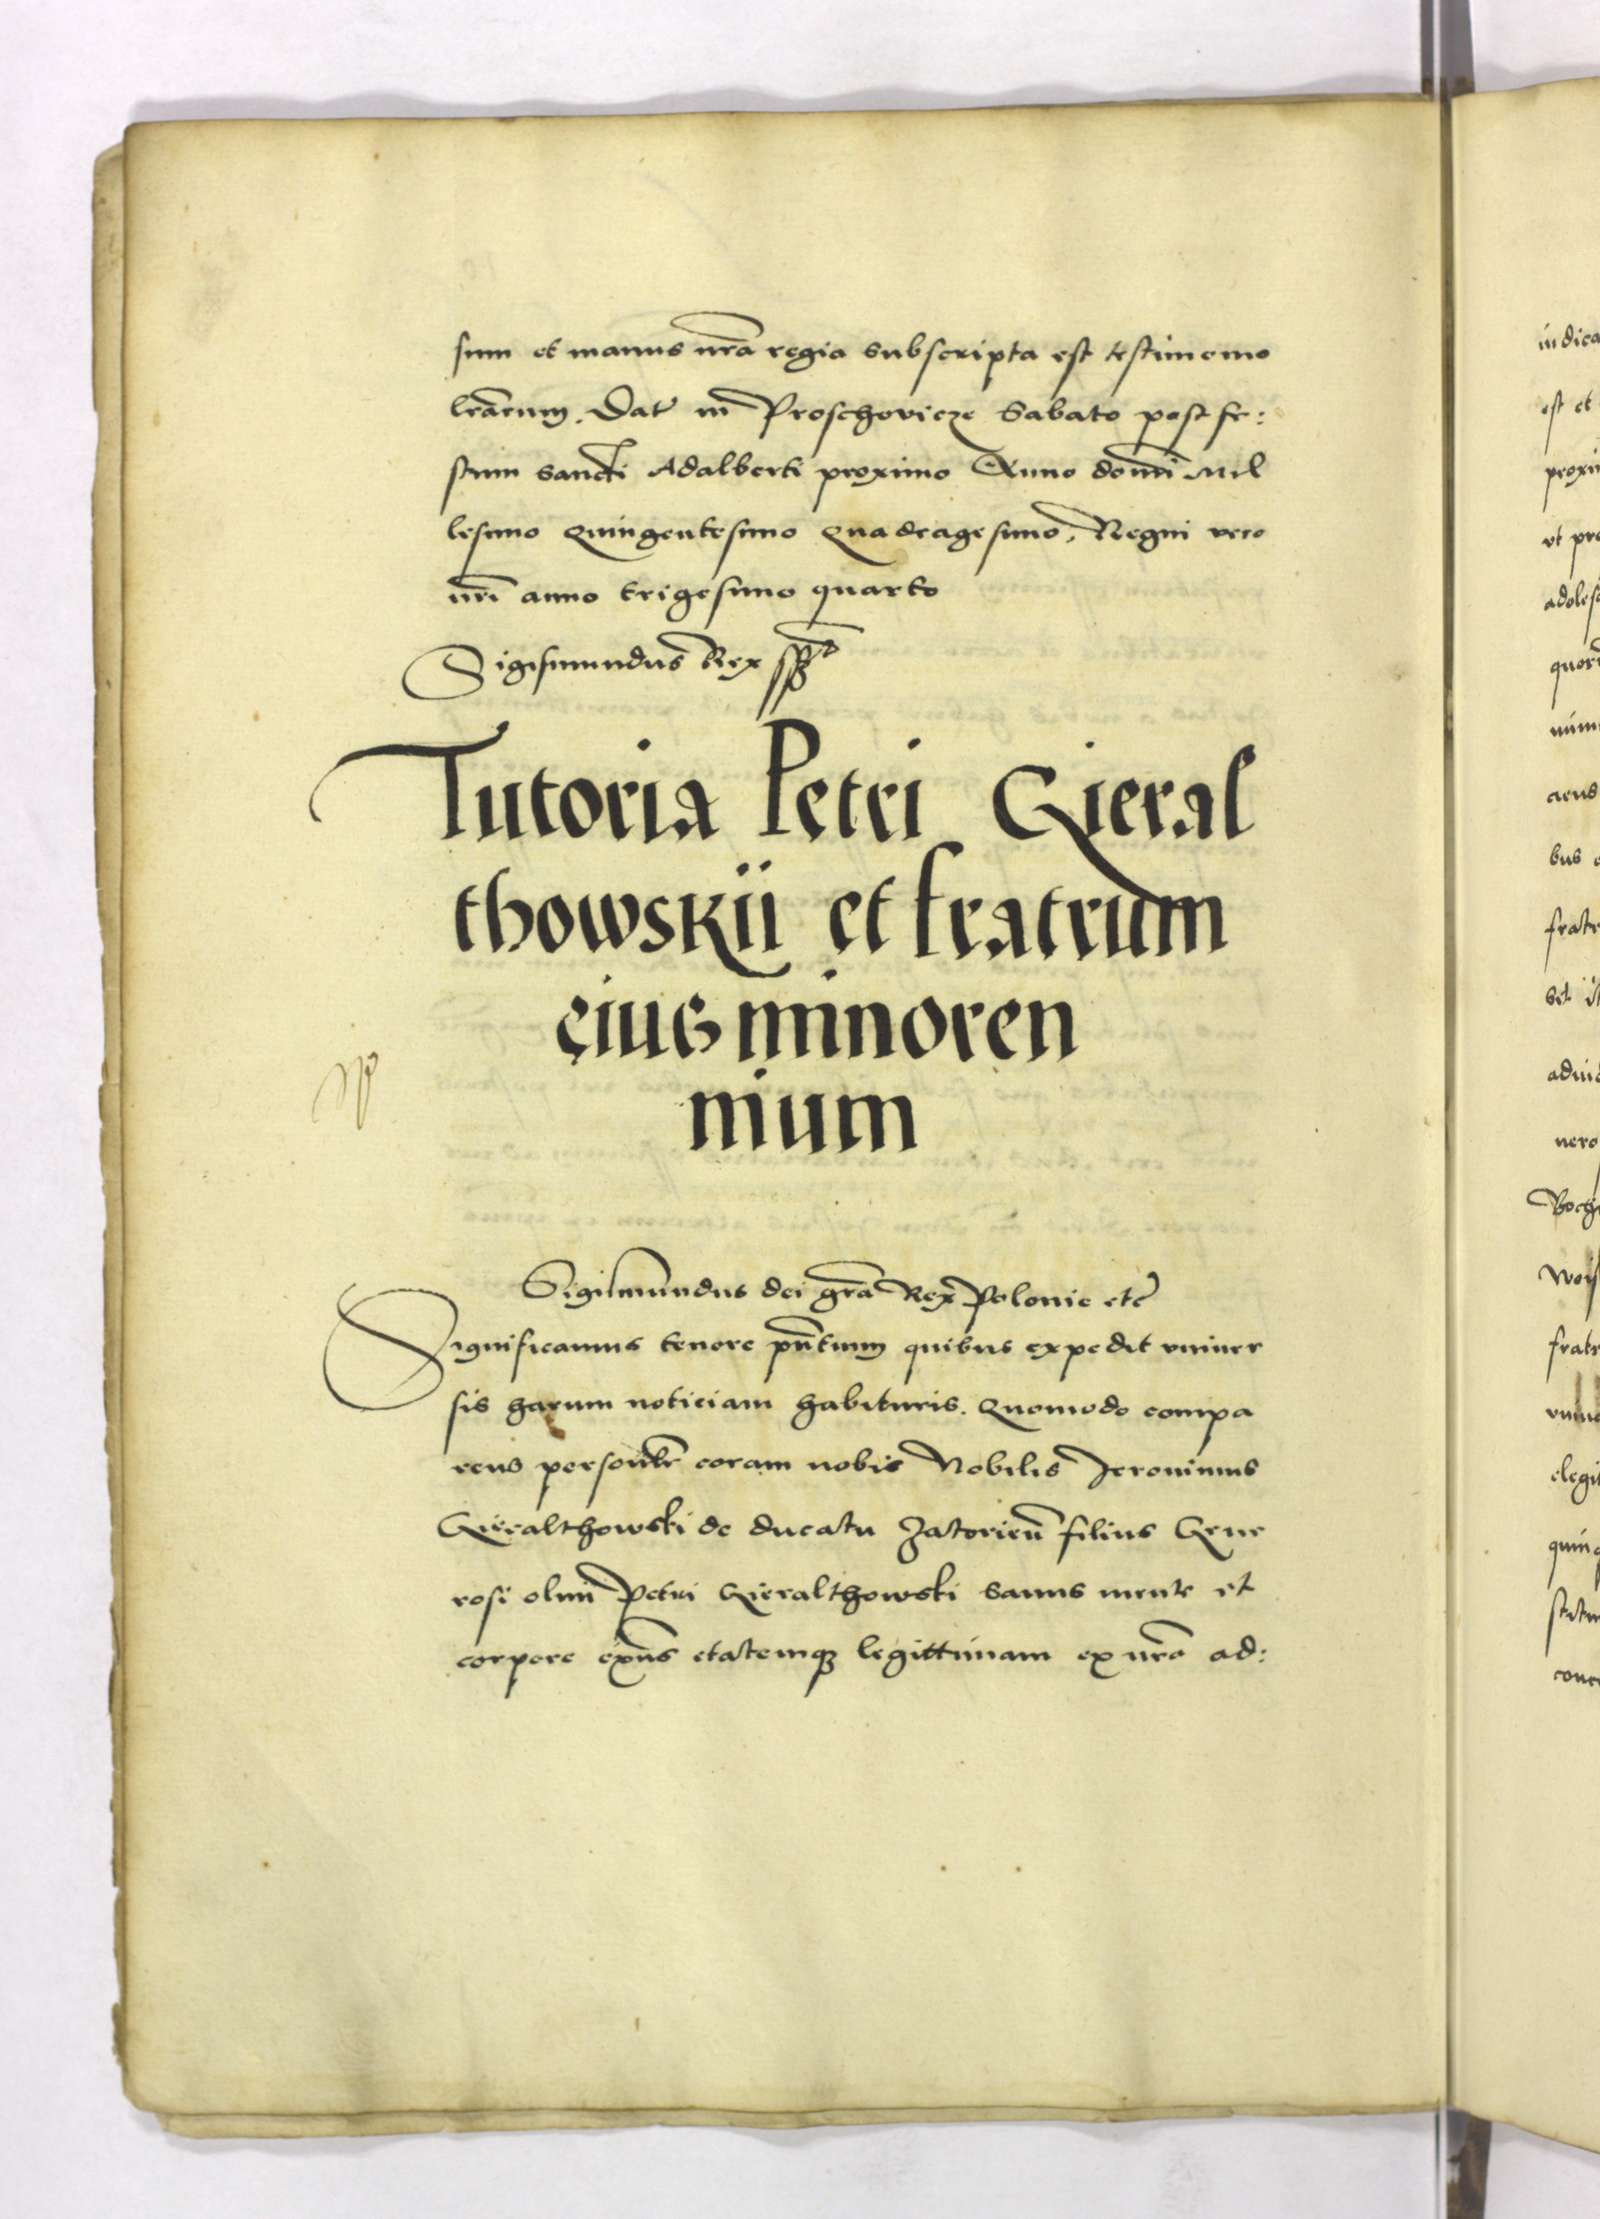 sum et manus nrã regia subscripta est testimonio
lrãrum. Dat in Proschovicze Sabato post fe:
stum sancti Adalberti proximo Anno domi Mil
lesimo Quingentesimo Quadragesimo, Regni vero
nri anno trigesimo quarto
Sigismundus Rex sspt
Tutoria Petri Gieral
thowskii et fratrum
eius minoren
nium
Sigismundus dei grã Rex Polonie etc
Significamus tenore pñtium quibus expedit vniuer
sis harum noticiam habituris. Quomodo compa
rens personlr coram nobis Nobilis Jeronimus
Gieralthowski de ducatu Zatorien filius Gene
rosi olim Petri Gieralthowski sanus mente et
corpore exñs etatemq legittimam ex nrã ad:
indica
est et
proxi
et pre
adoles
quor
num
aeus
bus
fratr
vero
Boch
frat
elegi
quinq